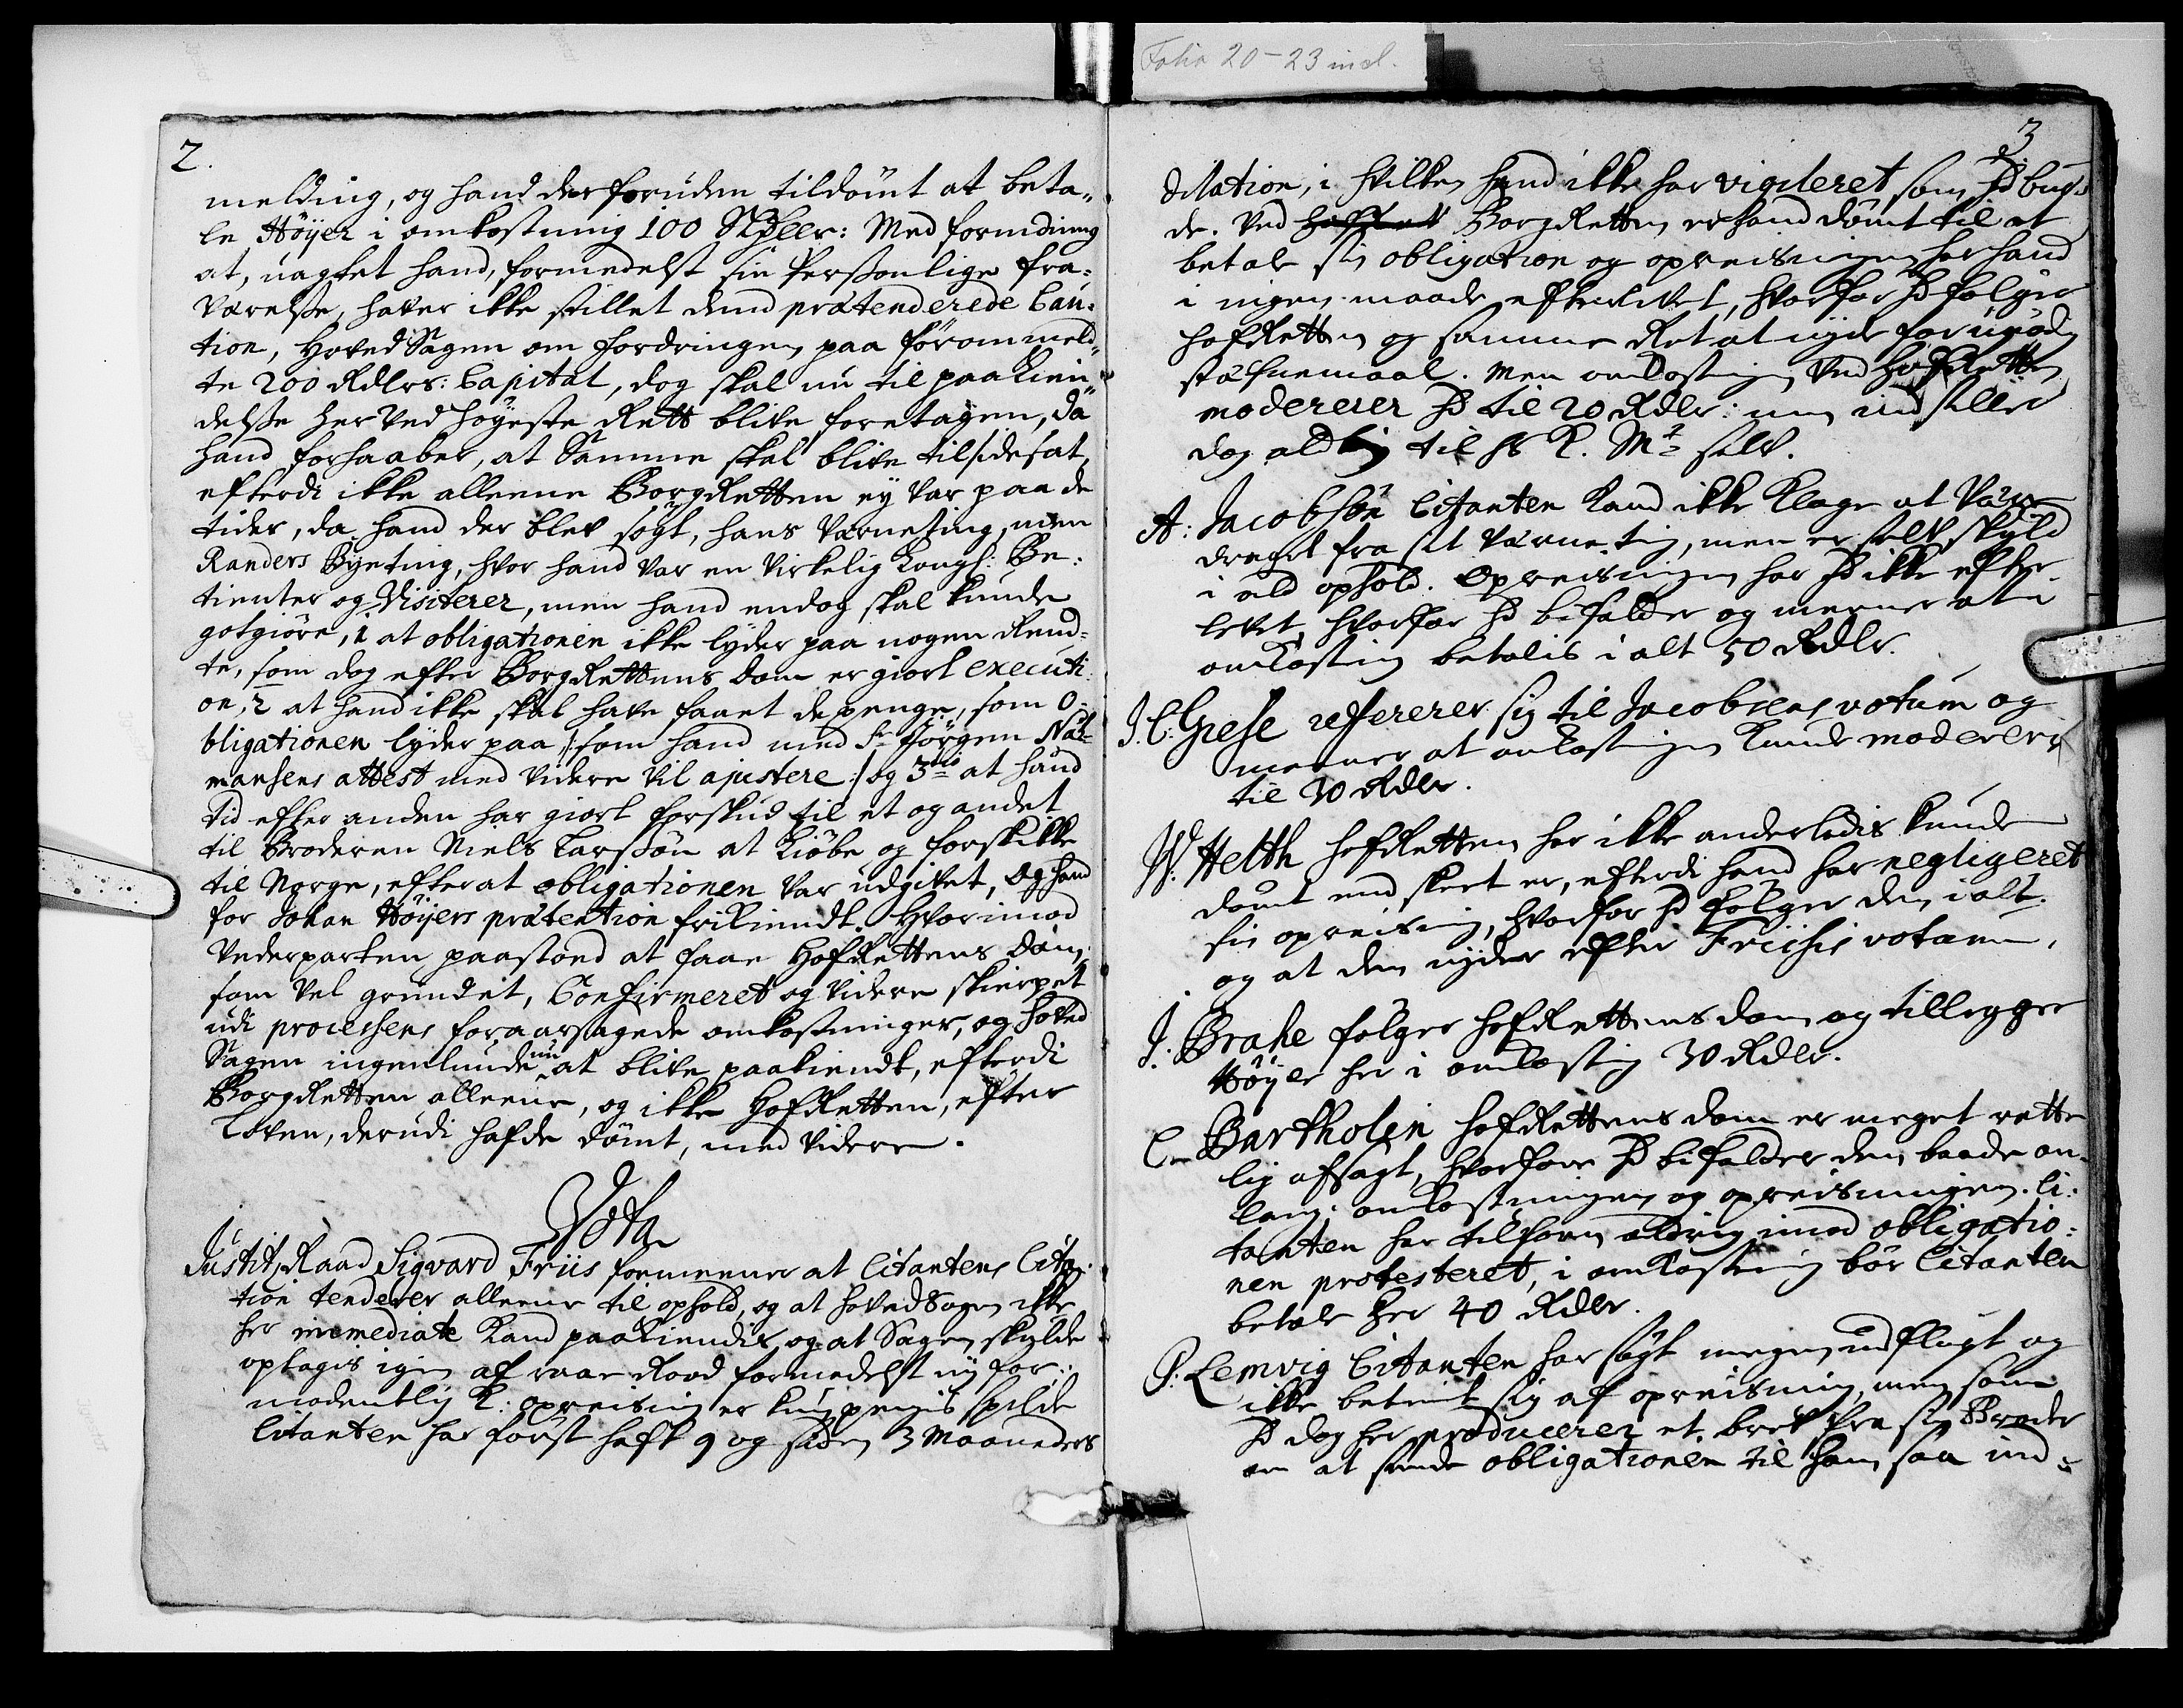 Folio 20-23 incl.
2.
melding, og hand der foruden tildömt at beta„
le Höÿer i omkostning 100 Rdler: Med formening
at, uagtet hand, formedelst sin Persohnlige fra„
Værelse, haver ikke stillet dend prætenderede Cau„
tion, Hoved Sagen om fordringen paa förommeld„
te 200 Rdlrs: Capital, dog skal nu til paakien„
delse her ved höÿeste Rett blive foretagen, da
hand forhaaber, at Samme skal blive tilsidesat,
efterdi ikke alleene Borgretten ej Var paa de
tider, da hand der blev sögt, hans Værneting, men
Randers Byeting, hvor hand var en Virkelig Kongl: Be„
tienter og Visiterer, men hand endog skal kunde
gotgiöre, 1 at obligationen ikke lyder paa nogen Rend„
te, som dog efter Borgrettens dom er giort executi
on, 2 at hand ikke skal have faaet de penge, som O„
bligationen lyder paa /: som hand med Sr Jörgen
mansens attest med videre vil ajustere :/ og 3tio at hand
tid efter anden har giort forskud til et og andet
til Broderen Niels Larssön at kiöbe og forskikke
til Norge, efter at obligationen Var udgivet, Og hand
for Johan Höÿers prætention frikiendt. Hvorimod
Vederparten paastoed at faae Hofrettens dom,
som Vel grundet, Confirmeret og Videre skierpet
udi processens foraarsagede omkostninger, og Hoved
Sagen ingenlunde nu at blive paakiendt, efterdi
Borgretten alleene, og ikke Hofretten, efter
Loven, derudi hafde dömt, med Videre.
Vota
Justitz Raad Sigvard Friis formeener at Citantens Cita„
tion tenderer alleene til ophold, og at hovedsagen ikke
her immediate kand paakiendis og at Sagen skulde
optagis igien af raae Rood formedelst nÿ for„
modentlig K: opreisning er kun penges spilde
Citanten har först haft 9 og siden 3 Maaneders
3
dilation, i hvilken hand ikke har vigileret som hand bur„
de. Ved Borgretten er hand dömt til at
betale sin obligation og opreisningen har hand
i ingen maade efterlevet, hvorfor hand fölger
hofretten og samme Ret at nyde for unödig
stæfnemaal. Men omkostningen ved Hofretten
modererer hand til 20 Rdlr: men indstiller
dog alting til hs K. Mt selv.
A: Jacobsön Citanten kand ikke klage at være
draget fra sit Værneting, men er selv skyld
i ald ophold. Opreisningen har hand ikke efter„
levet, hvorfor hand bifalder og meener at i
omkostning betalis i alt 50 Rdlr.
J. C: Grese refererer sig til Jacobsens votum og
meener at omkostningen kunde modereris
til 30 Rdlr.
W: Helth hofretten har ikke anderledis kunde
dömt end skeet er, efterdi hand har negligeret
sin opreisning, hvorfor hand fölger den i alt.
og at den nyder efter Friises votum.
J. Brahe fölger hofrettens dom og tillegger
Höÿer her i omkostning 30 Rdlr.
C. Bartholin hofrettens dom er meget rette
lig afsagt, hvorfore hand bifalder den, baade an„
lang: omkostningen og opreisningen. Ci„
tanten har tilforn aldrig imod obligatio„
nen protesteret, i omkostning bör Citanten
betale her 40 Rdlr.
P: Lemvig Citanten har sögt megen udflugt og
ikke betient sig af opreisning, men som
hand dog her producerer et brev fra sin Broder
om at sende obligationen til ham, saa ind„